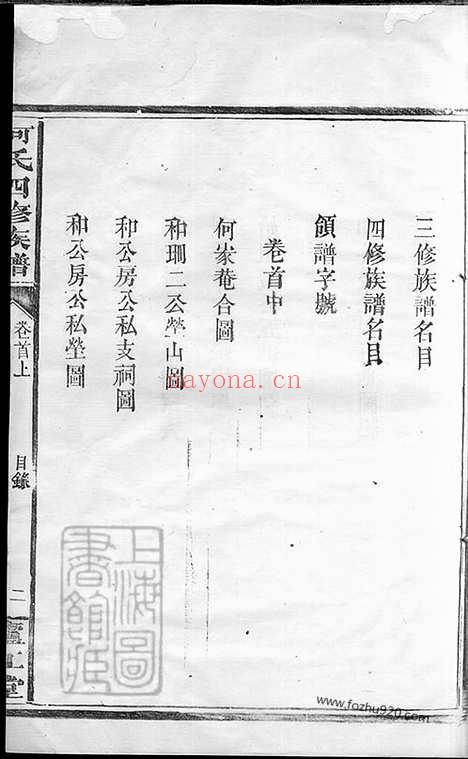 三修族譜名目
四修族譜名目
領譜字號
卷首中
何家菴合圖
和珊二公塋山圖
和公房公私支祠圖
和公房公私塋圖
何氏四修族譜
卷首上
目錄
二
廬江堂
上海圖書館藏
nayona.cn
www.fozhu920.com